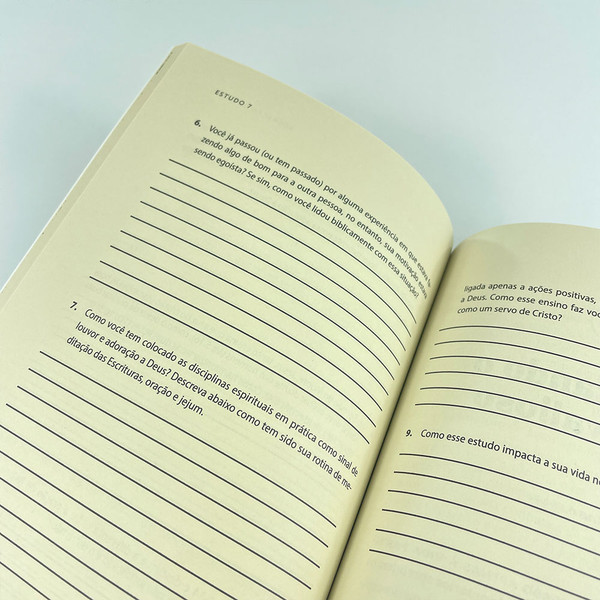 ESTUDO 7
6. Você já passou (ou tem passado) por alguma experiência em que estava fa-
zendo algo de bom para a outra pessoa, no entanto, sua motivação estava
sendo egoísta? Se sim, como você lidou biblicamente com essa situação?
7. Como você tem colocado as disciplinas espirituais em prática como sinal de
louvor e adoração a Deus? Descreva abaixo como tem sido sua rotina de me-
ditação das Escrituras, oração e jejum.
ligada apenas a ações positivas,
a Deus. Como esse ensino faz você
como um servo de Cristo?
9. Como esse estudo impacta a sua vida